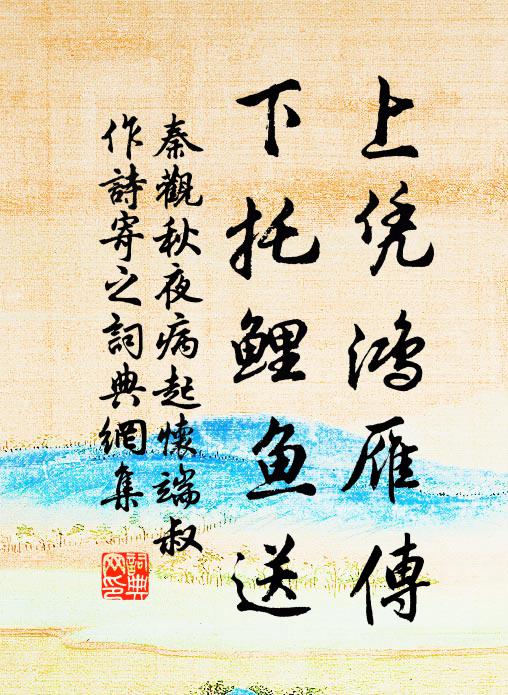 上凭鸿雁傳
下托鲤鱼送
秦觀秋夜病起懷端叔
作詩寄之詞典網集
詞典
网印